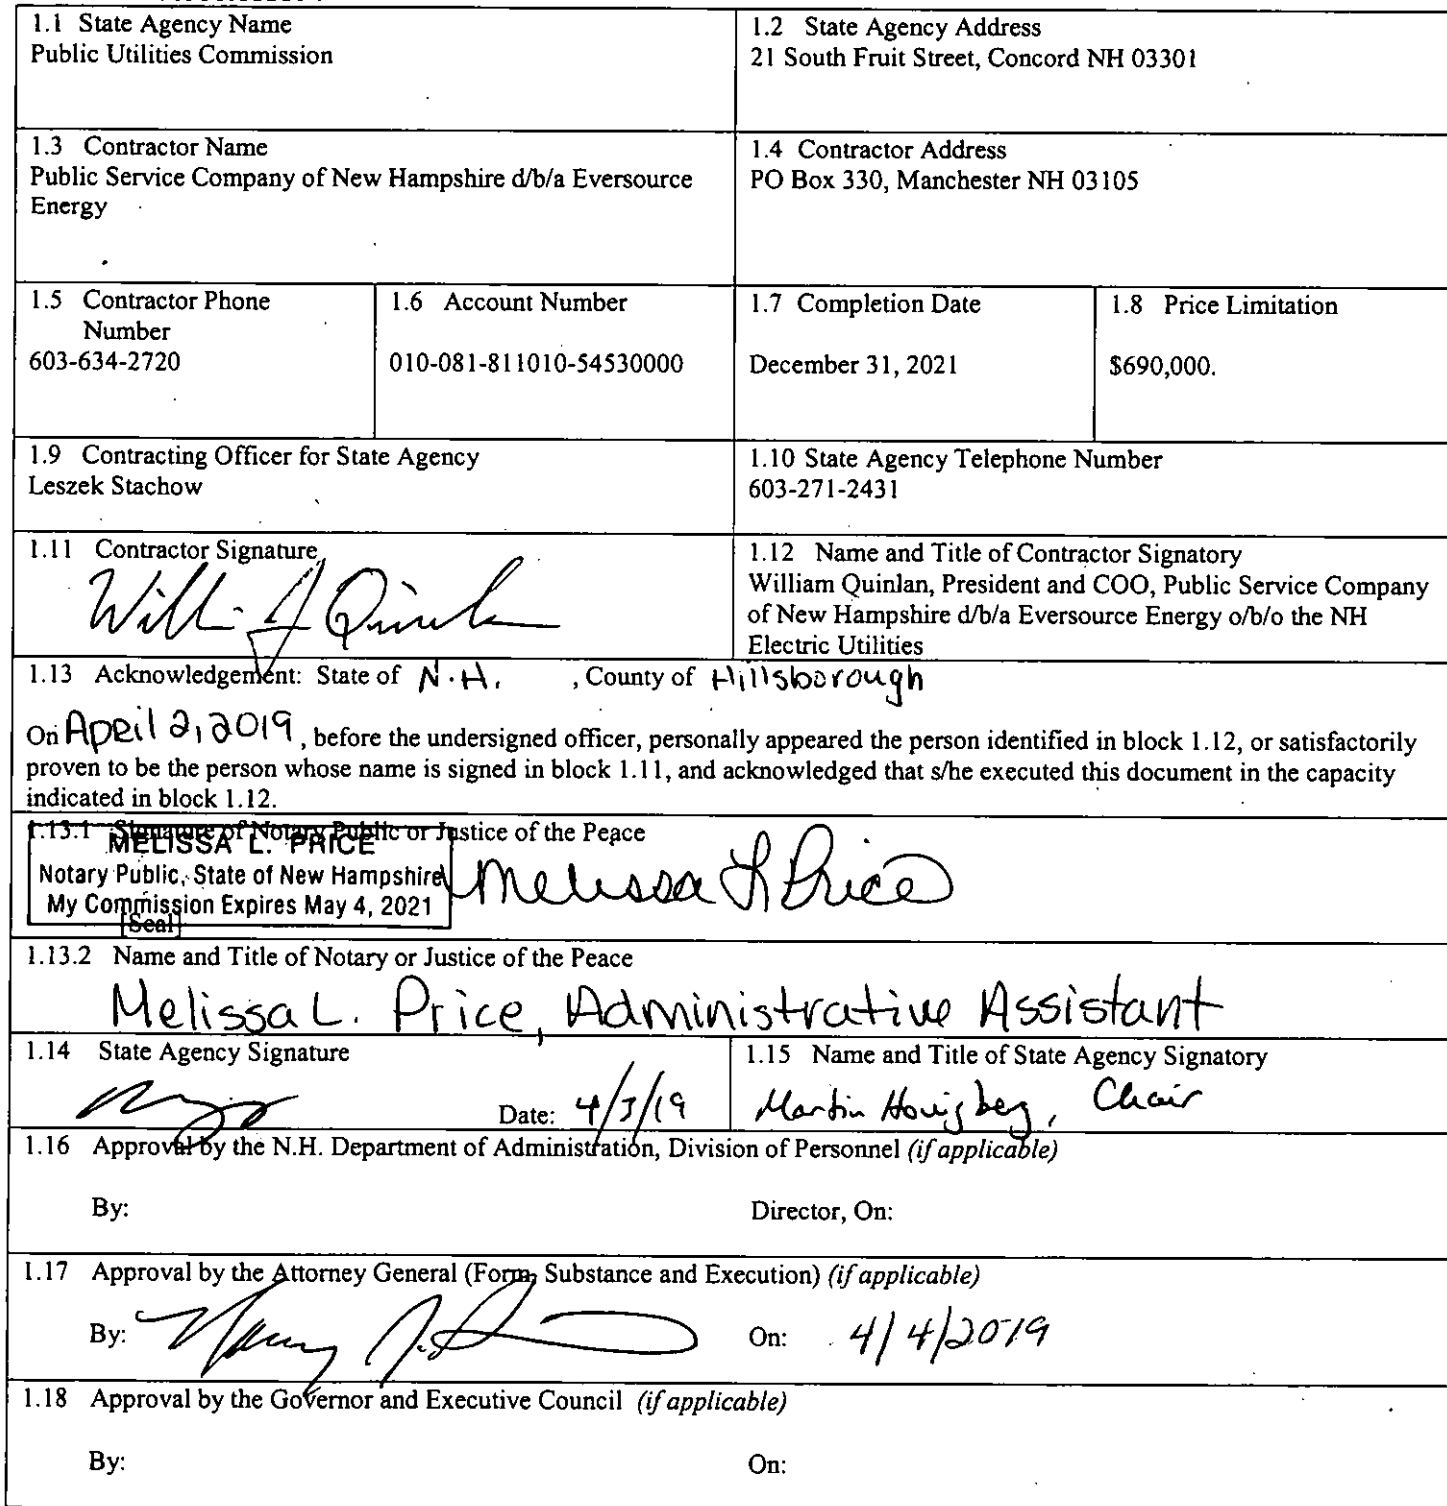 1.1 State Agency Name
Public Utilities Commission
1.2 State Agency Address
21 South Fruit Street, Concord NH 03301
1.3 Contractor Name
Public Service Company of New Hampshire d/b/a Eversource
Energy
1.4 Contractor Address
PO Box 330, Manchester NH 03105
1.5 Contractor Phone
Number
603-634-2720
1.6 Account Number
010-081-811010-54530000
1.7 Completion Date
December 31, 2021
1.8 Price Limitation
$690,000.
1.9 Contracting Officer for State Agency
Leszek Stachow
1.10 State Agency Telephone Number
603-271-2431
1.11 Contractor Signature
Willi J Quinlan
1.12 Name and Title of Contractor Signatory
William Quinlan, President and COO, Public Service Company
of New Hampshire d/b/a Eversource Energy o/b/o the NH
Electric Utilities
1.13 Acknowledgement: State of N.H. , County of Hillsborough
On April 2, 2019, before the undersigned officer, personally appeared the person identified in block 1.12, or satisfactorily
proven to be the person whose name is signed in block 1.11, and acknowledged that s/he executed this document in the capacity
indicated in block 1.12.
1.13.1 Signature of Notary Public or Justice of the Peace
MELISSA L. PRICE
Notary Public, State of New Hampshire
My Commission Expires May 4, 2021
[Seal]
Melissa L Price
1.13.2 Name and Title of Notary or Justice of the Peace
Melissa L. Price, Administrative Assistant
1.14 State Agency Signature
Date: 4/3/19
1.15 Name and Title of State Agency Signatory
Martin Honigberg, Chair
1.16 Approval by the N.H. Department of Administration, Division of Personnel (if applicable)
By: Director, On:
1.17 Approval by the Attorney General (Form, Substance and Execution) (if applicable)
By: On: 4/4/2019
1.18 Approval by the Governor and Executive Council (if applicable)
By: On: